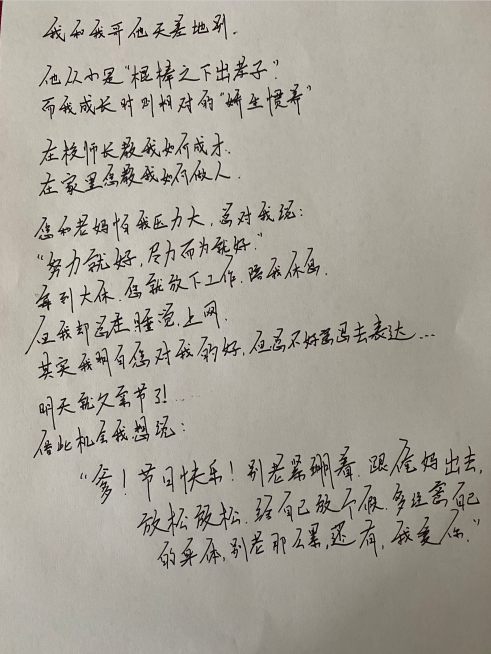 我和我哥他天差地别.
他从小是"棍棒之下出孝子".
而我成长时则相对的"娇生惯养"
在校师长教我如何成才.
在家里您教我如何做人.
您和老妈怕我压力大,总对我说:
"努力就好,尽力而为就好."
每到大休.您就放下工作.陪我休息.
但我却总是睡觉.上网.
其实我明白您对我的好,但总不好意思去表达...
明天就父亲节了!.....
借此机会我想说:
"爹!节日快乐!别老紧绷着.跟俺妈出去,
放松放松.给自己放个假.多注意自己
的身体,别老那么累,还有,我爱你."